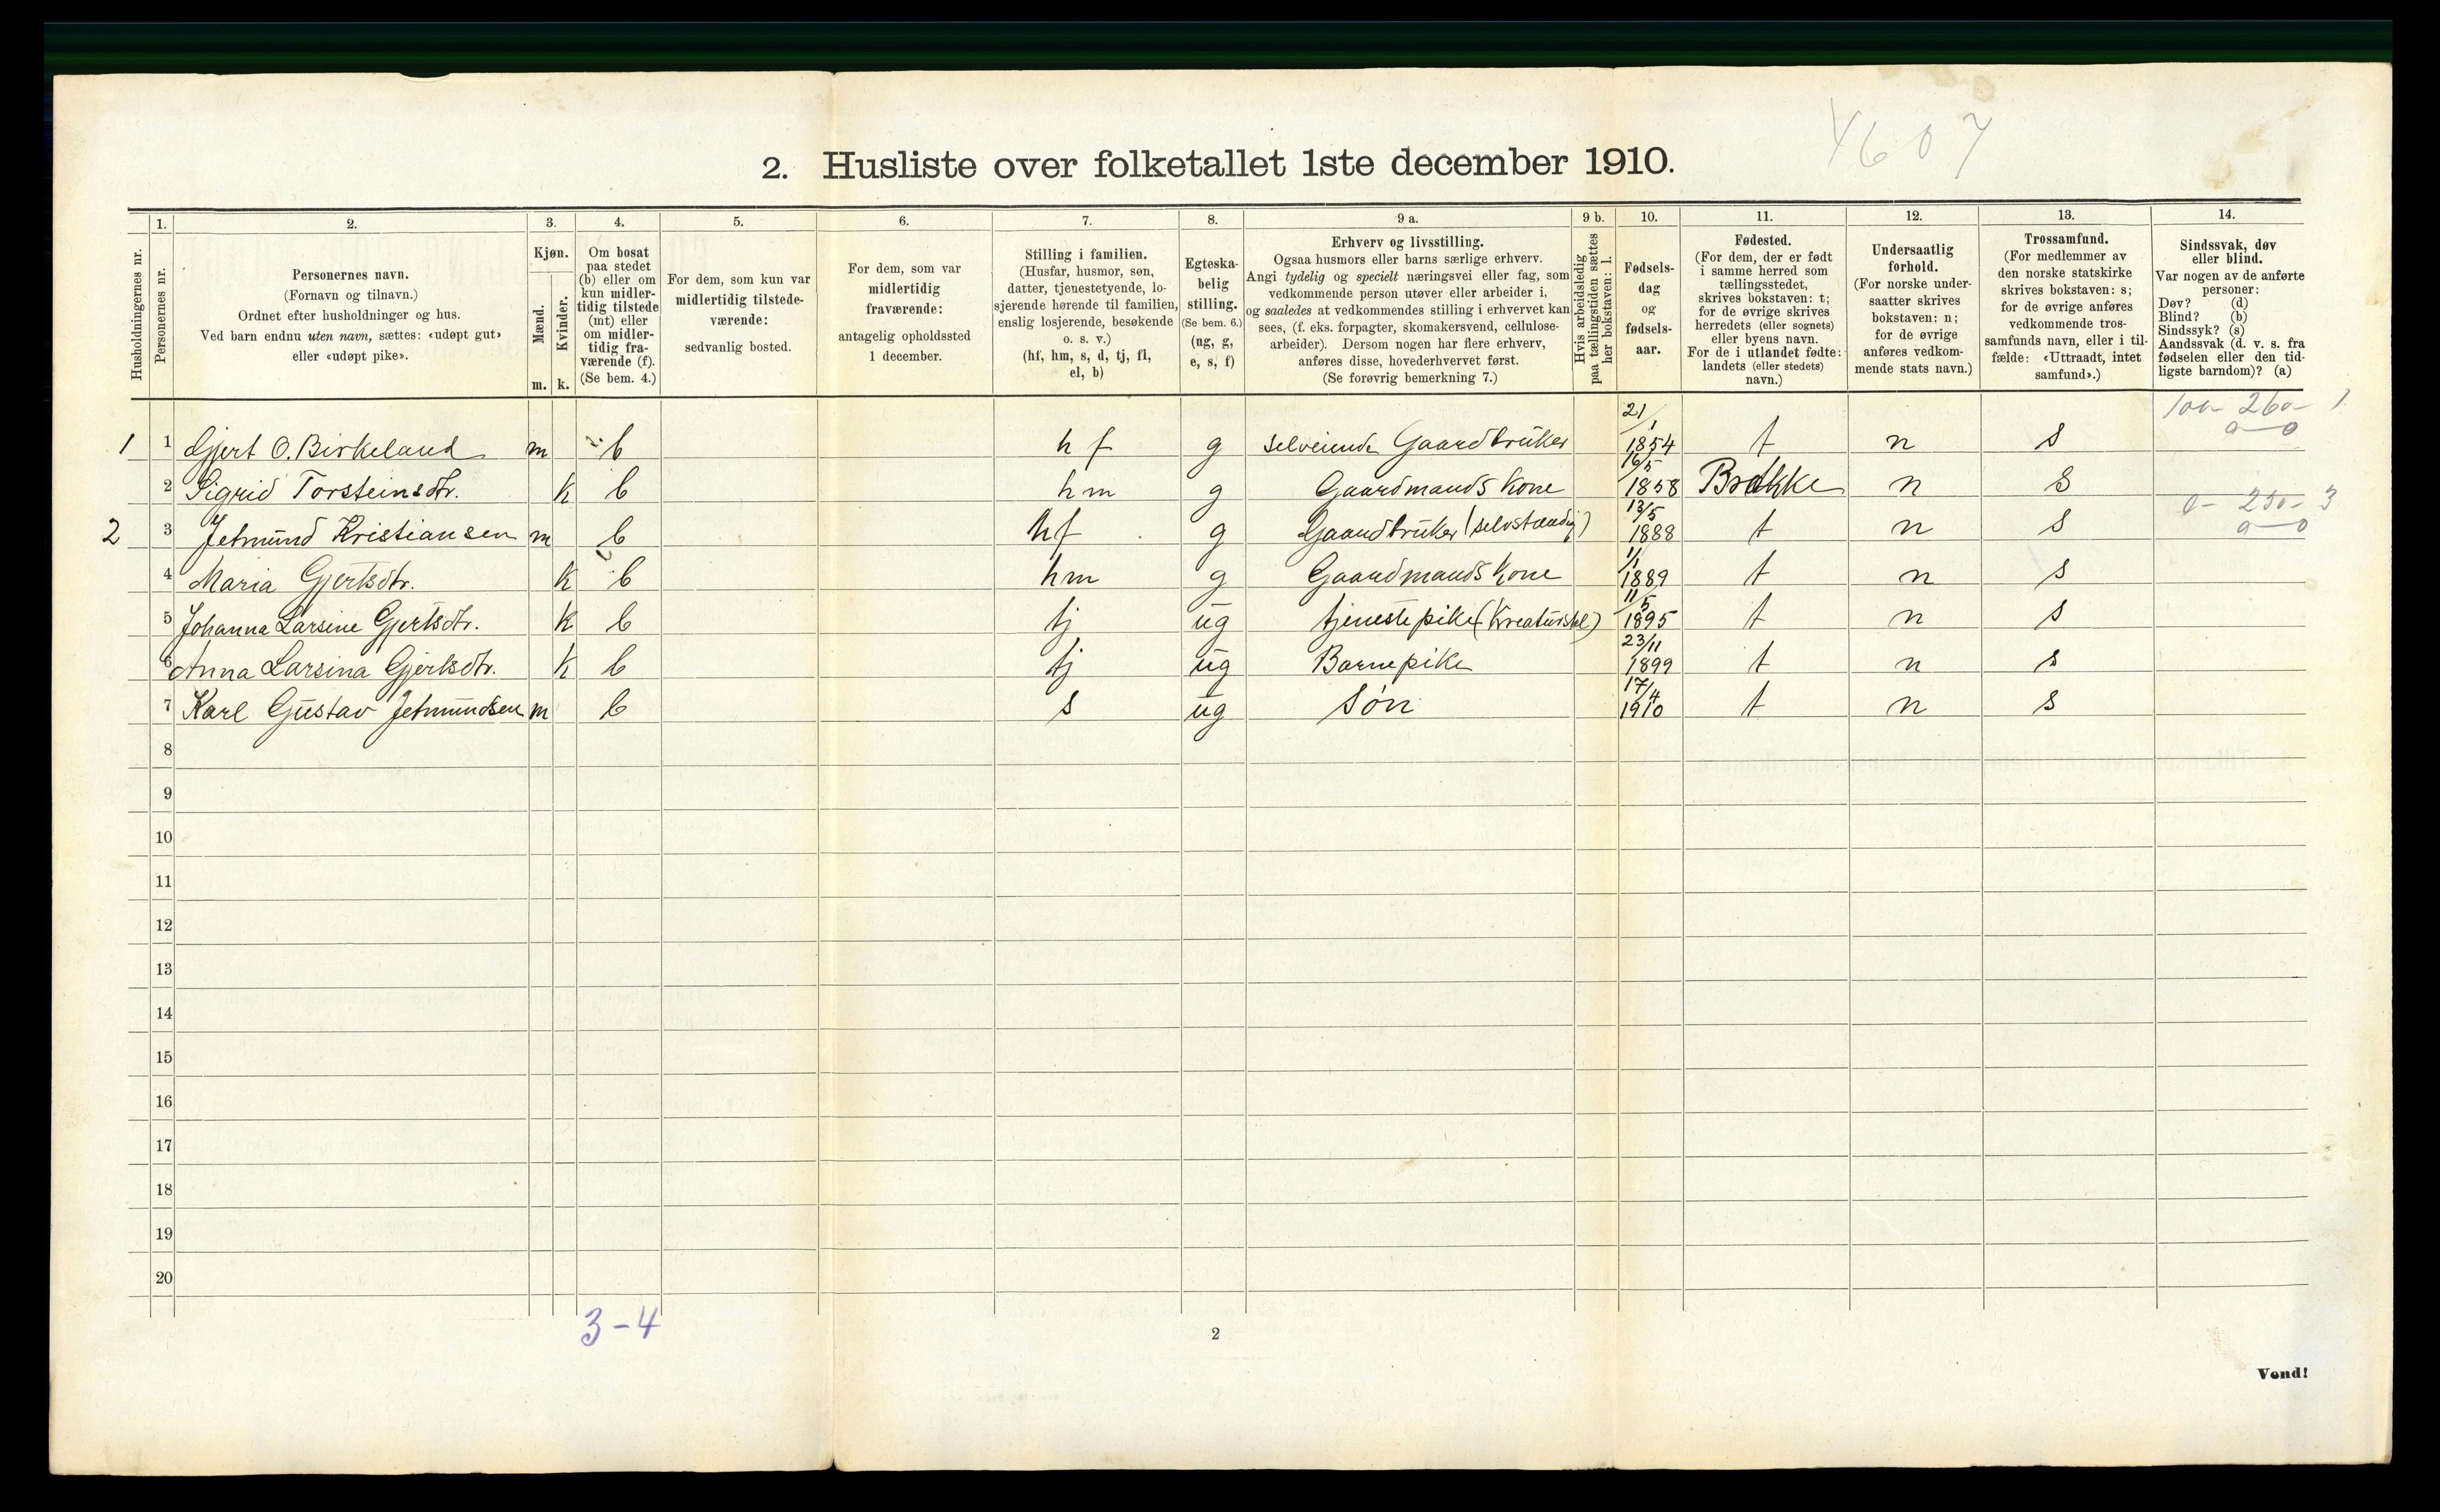 4607
2. Husliste over folketallet 1ste december 1910.
Husholdningernes nr.
1.
Personernes nr.
2.
Personernes navn.
(Fornavn og tilnavn.)
Ordnet efter husholdninger og hus.
Ved barn endnu uten navn, sættes: «udøpt gut»
eller «udøpt pike».
3.
Kjøn.
Mænd.
m.
Kvinder.
k.
4.
Om bosat
paa stedet
(b) eller om
kun midler-
tidig tilstede
(mt) eller
om midler-
tidig fra-
værende (f).
(Se bem. 4.)
5.
For dem, som kun var
midlertidig tilstede-
værende:
sedvanlig bosted.
6.
For dem, som var
midlertidig
fraværende:
antagelig opholdssted
1 december.
7.
Stilling i familien.
(Husfar, husmor, søn,
datter, tjenestetyende, lo-
sjerende hørende til familien,
enslig losjerende, besøkende
o. s. v.)
(hf, hm, s, d, tj, fl,
el, b)
8.
Egteska-
belig
stilling.
(Se bem. 6.)
(ug, g,
e, s, f)
9 a.
Erhverv og livsstilling.
Ogsaa husmors eller barns særlige erhverv.
Angi tydelig og specielt næringsvei eller fag, som
vedkommende person utøver eller arbeider i,
og saaledes at vedkommendes stilling i erhvervet kan
sees, (f. eks. forpagter, skomakersvend, cellulose-
arbeider). Dersom nogen har flere erhverv,
anføres disse, hovederhvervet først.
(Se forøvrig bemerkning 7.)
9 b.
Hvis arbeidsledig
paa tællingstiden sættes
her bokstaven: l.
10.
Fødsels-
dag
og
fødsels-
aar.
11.
Fødested.
(For dem, der er født
i samme herred som
tællingsstedet,
skrives bokstaven: t;
for de øvrige skrives
herredets (eller sognets)
eller byens navn.
For de i utlandet fødte:
landets (eller stedets)
navn.)
12.
Undersaatlig
forhold.
(For norske under-
saatter skrives
bokstaven: n;
for de øvrige
anføres vedkom-
mende stats navn.)
13.
Trossamfund.
(For medlemmer av
den norske statskirke
skrives bokstaven: s;
for de øvrige anføres
vedkommende tros-
samfunds navn, eller i til-
fælde: «Uttraadt, intet
samfund».)
14.
Sindssvak, døv
eller blind.
Var nogen av de anførte
personer:
Døv? (d)
Blind? (b)
Sindssyk? (s)
Aandssvak (d. v. s. fra
fødselen eller den tid-
ligste barndom)? (a)
1 1 Gjert O. Birkeland m b hf g selveiende Gaardbruker 21/1 1854 t n s
2 Sigrid Torsteinsdtr. k b hm g Gaardmands Kone 16/5 1858 Bakke n s
2 3 Jetmund Kristiansen m b hf g Gaardbruker (selvstændig) 13/5 1888 t n s
4 Maria Gjertsdtr. k b hm g Gaardmands Kone 1/1 1889 t n s
5 Johanna Larsine Gjertsdtr. k b tj ug tjenestepike (Kreaturstel) 11/5 1895 t n s
6 Anna Larsina Gjertsdtr. k b tj ug Barnepike 23/11 1899 t n s
7 Karl Gustav Jetmundsen m b s ug søn 17/4 1910 t n s
8
9
10
11
12
13
14
15
16
17
18
19
20
3-4
2
Vend!